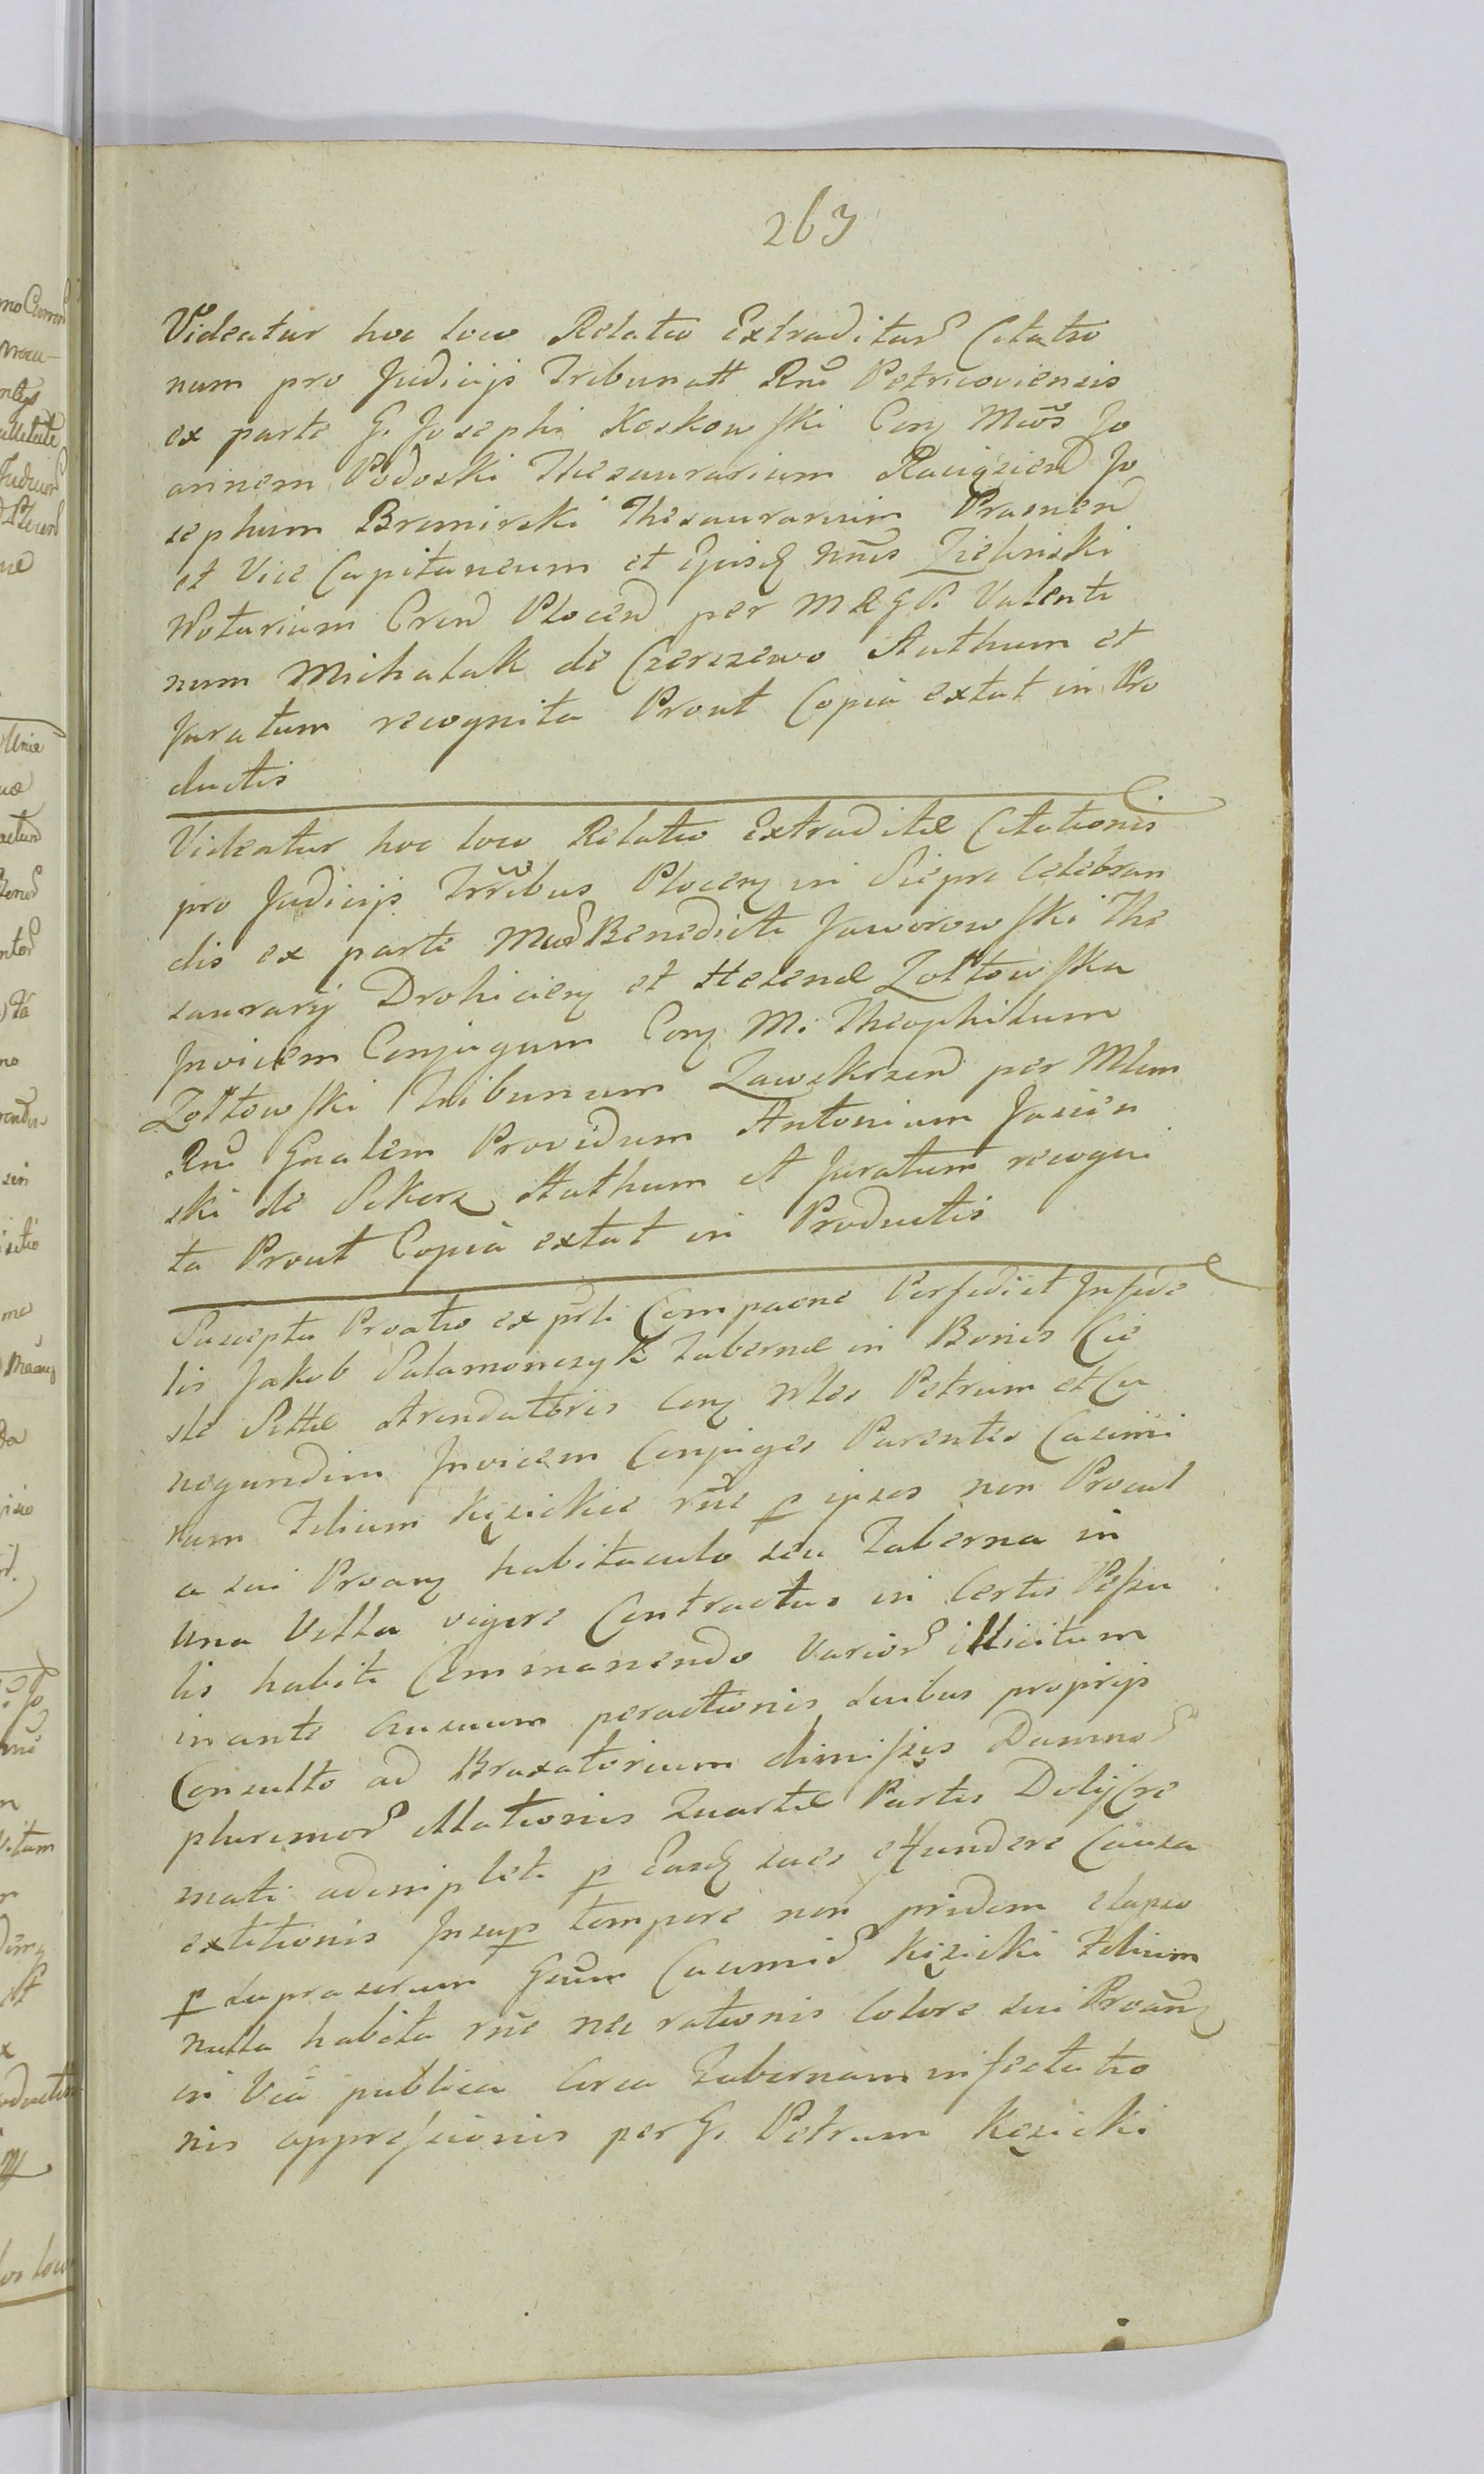 263
Videatur hoc loco Relatio Extraditar Citatio
num pro Judicijs Tribunall Rni Petricoviensis
ex parte G. Josephi Koskowski Con Mcos Jo
annem Podoski Thesaurarium Raciązien Jo
sephum Bromirski Thesaurarium Prasnen
et Vice Capitaneum et Ejusq Nnus Zielinski
Notarium Cren Plocen per M R G P. Valenti
num Michalak de Czerczewo Authum et
Juratum recognita Prout Copia extat in Pro
ductis
Videatur hoc loco Relatio Extraditæ Citationis
pro Judicijs Trribus Plocen in Sieprc Celebran
dis ex parte Mcor Benedicti Jaworowski The
saurarij Drohicien et Helenæ Zołtowska
Invicem Conjugum Con M. Theophilum
Zołtowski Tribunum Zawskrzen per Mlem
Rni Gnalem Providum Antonium Jasień
ski de Sikorz Authum et Juratum recogni
ta Prout Copia extat in Productis
Suscepta Proatio ex prti Compaone Perfidi et Infide
lis Jakob Salamonczyk Tabernæ in Bonis Cie
sle Arendatoris Con Nles Petrum et Cu
negundim Invicem Conjuges Parentes Casimi
rum Filium Kęsickie rne p ipsos non Procul
a sui Proan habitaculo seu Taberna in
una Villa vigore Contractus in Certis Pessu
lis habiti Commanendo Varior illicitum
in ante Ausuum peractionis suibus proprijs
Consulto ad Braxatorium dimissis Damnor
plurimor illationis Quartæ Partis Dolij Cre
mati adimpleti p Easq sues effundere Causa
extitionis Insup tempore non pridem elapso
p supra serum Gsum Casimir Kęsicki Filium
nulla habita rne nec rationis Colore sui Proan
in Via publica Circa Tabernam insectatio
nis oppressionis per G. Petrum Kęsicki